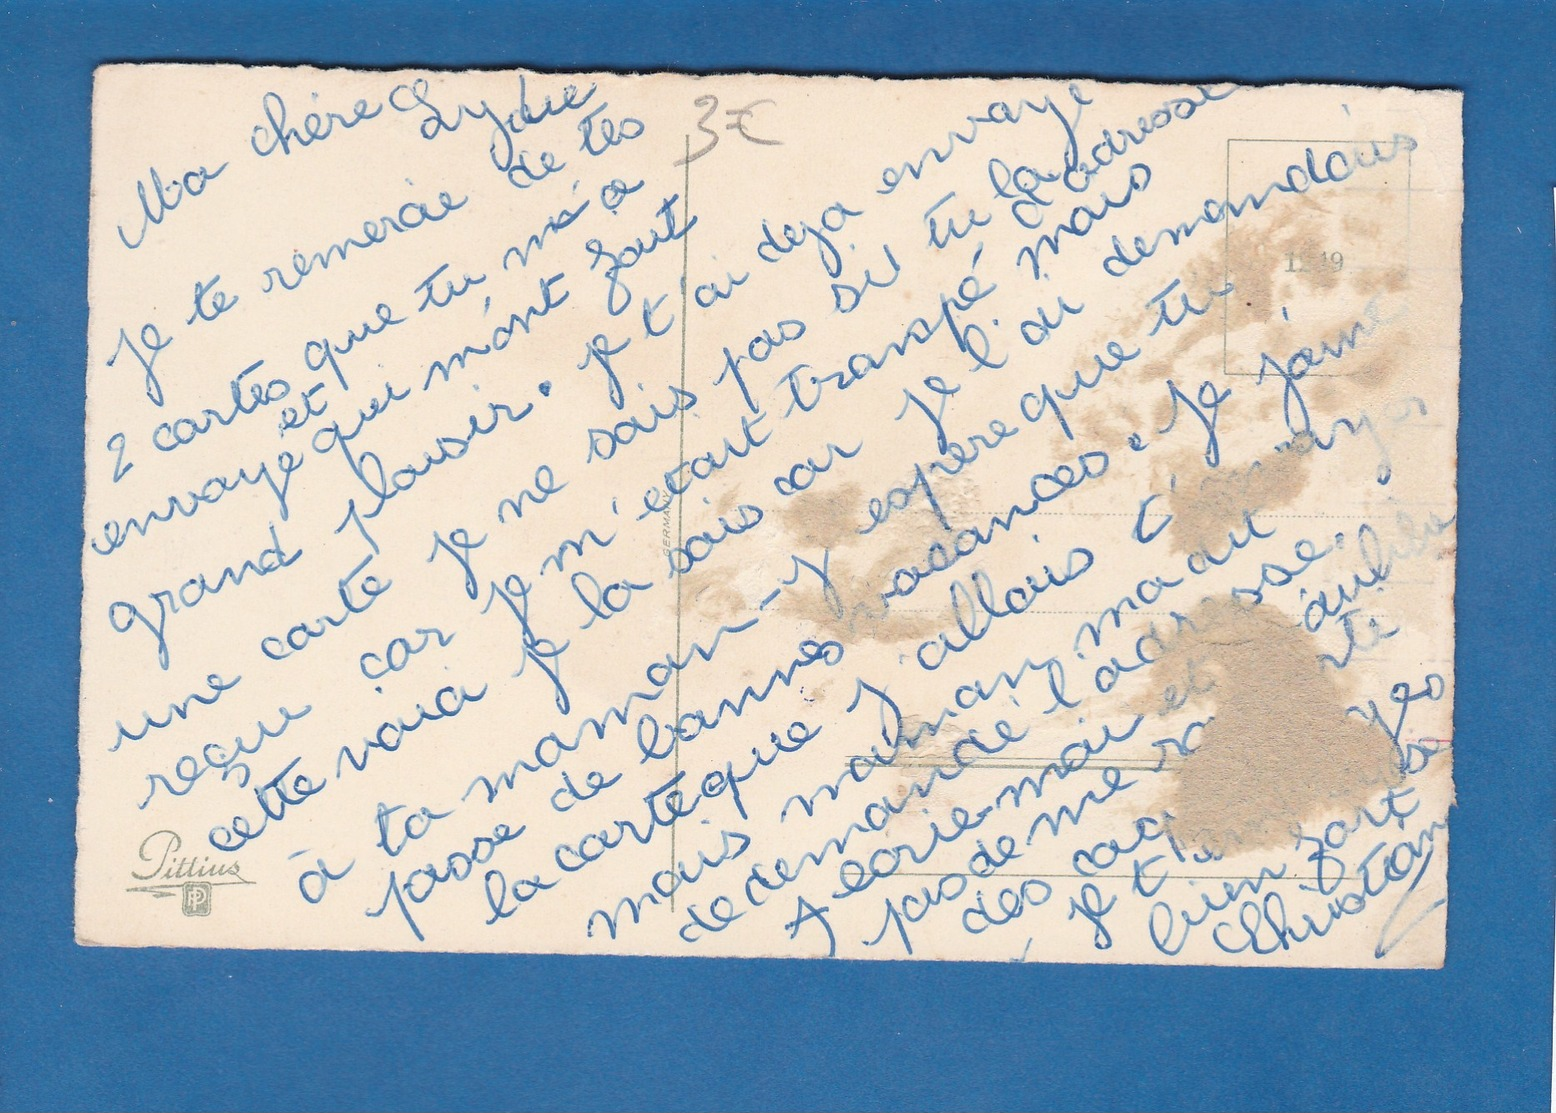 Ma chère Lydie
Je te remercie de tes
2 cartes que tu m'a
envoyé et qui m'ont fait
grand plaisir. je t'ai deja envoyé
une carte je ne sais pas si tu la
reçu car je m'etait trompé d'adresse mais
cette voici je la sais car je l'ai demandais
à ta maman - j'espère que tu
passe de bonnes vacances. Je
la carte que j'allais t'envoyer
mais maman ma dit
de demandé l'adresse.
ecrie-moi et
pas de me
des
je t'
bien fort
Christian
3€
GERMANY
Pittius
PP